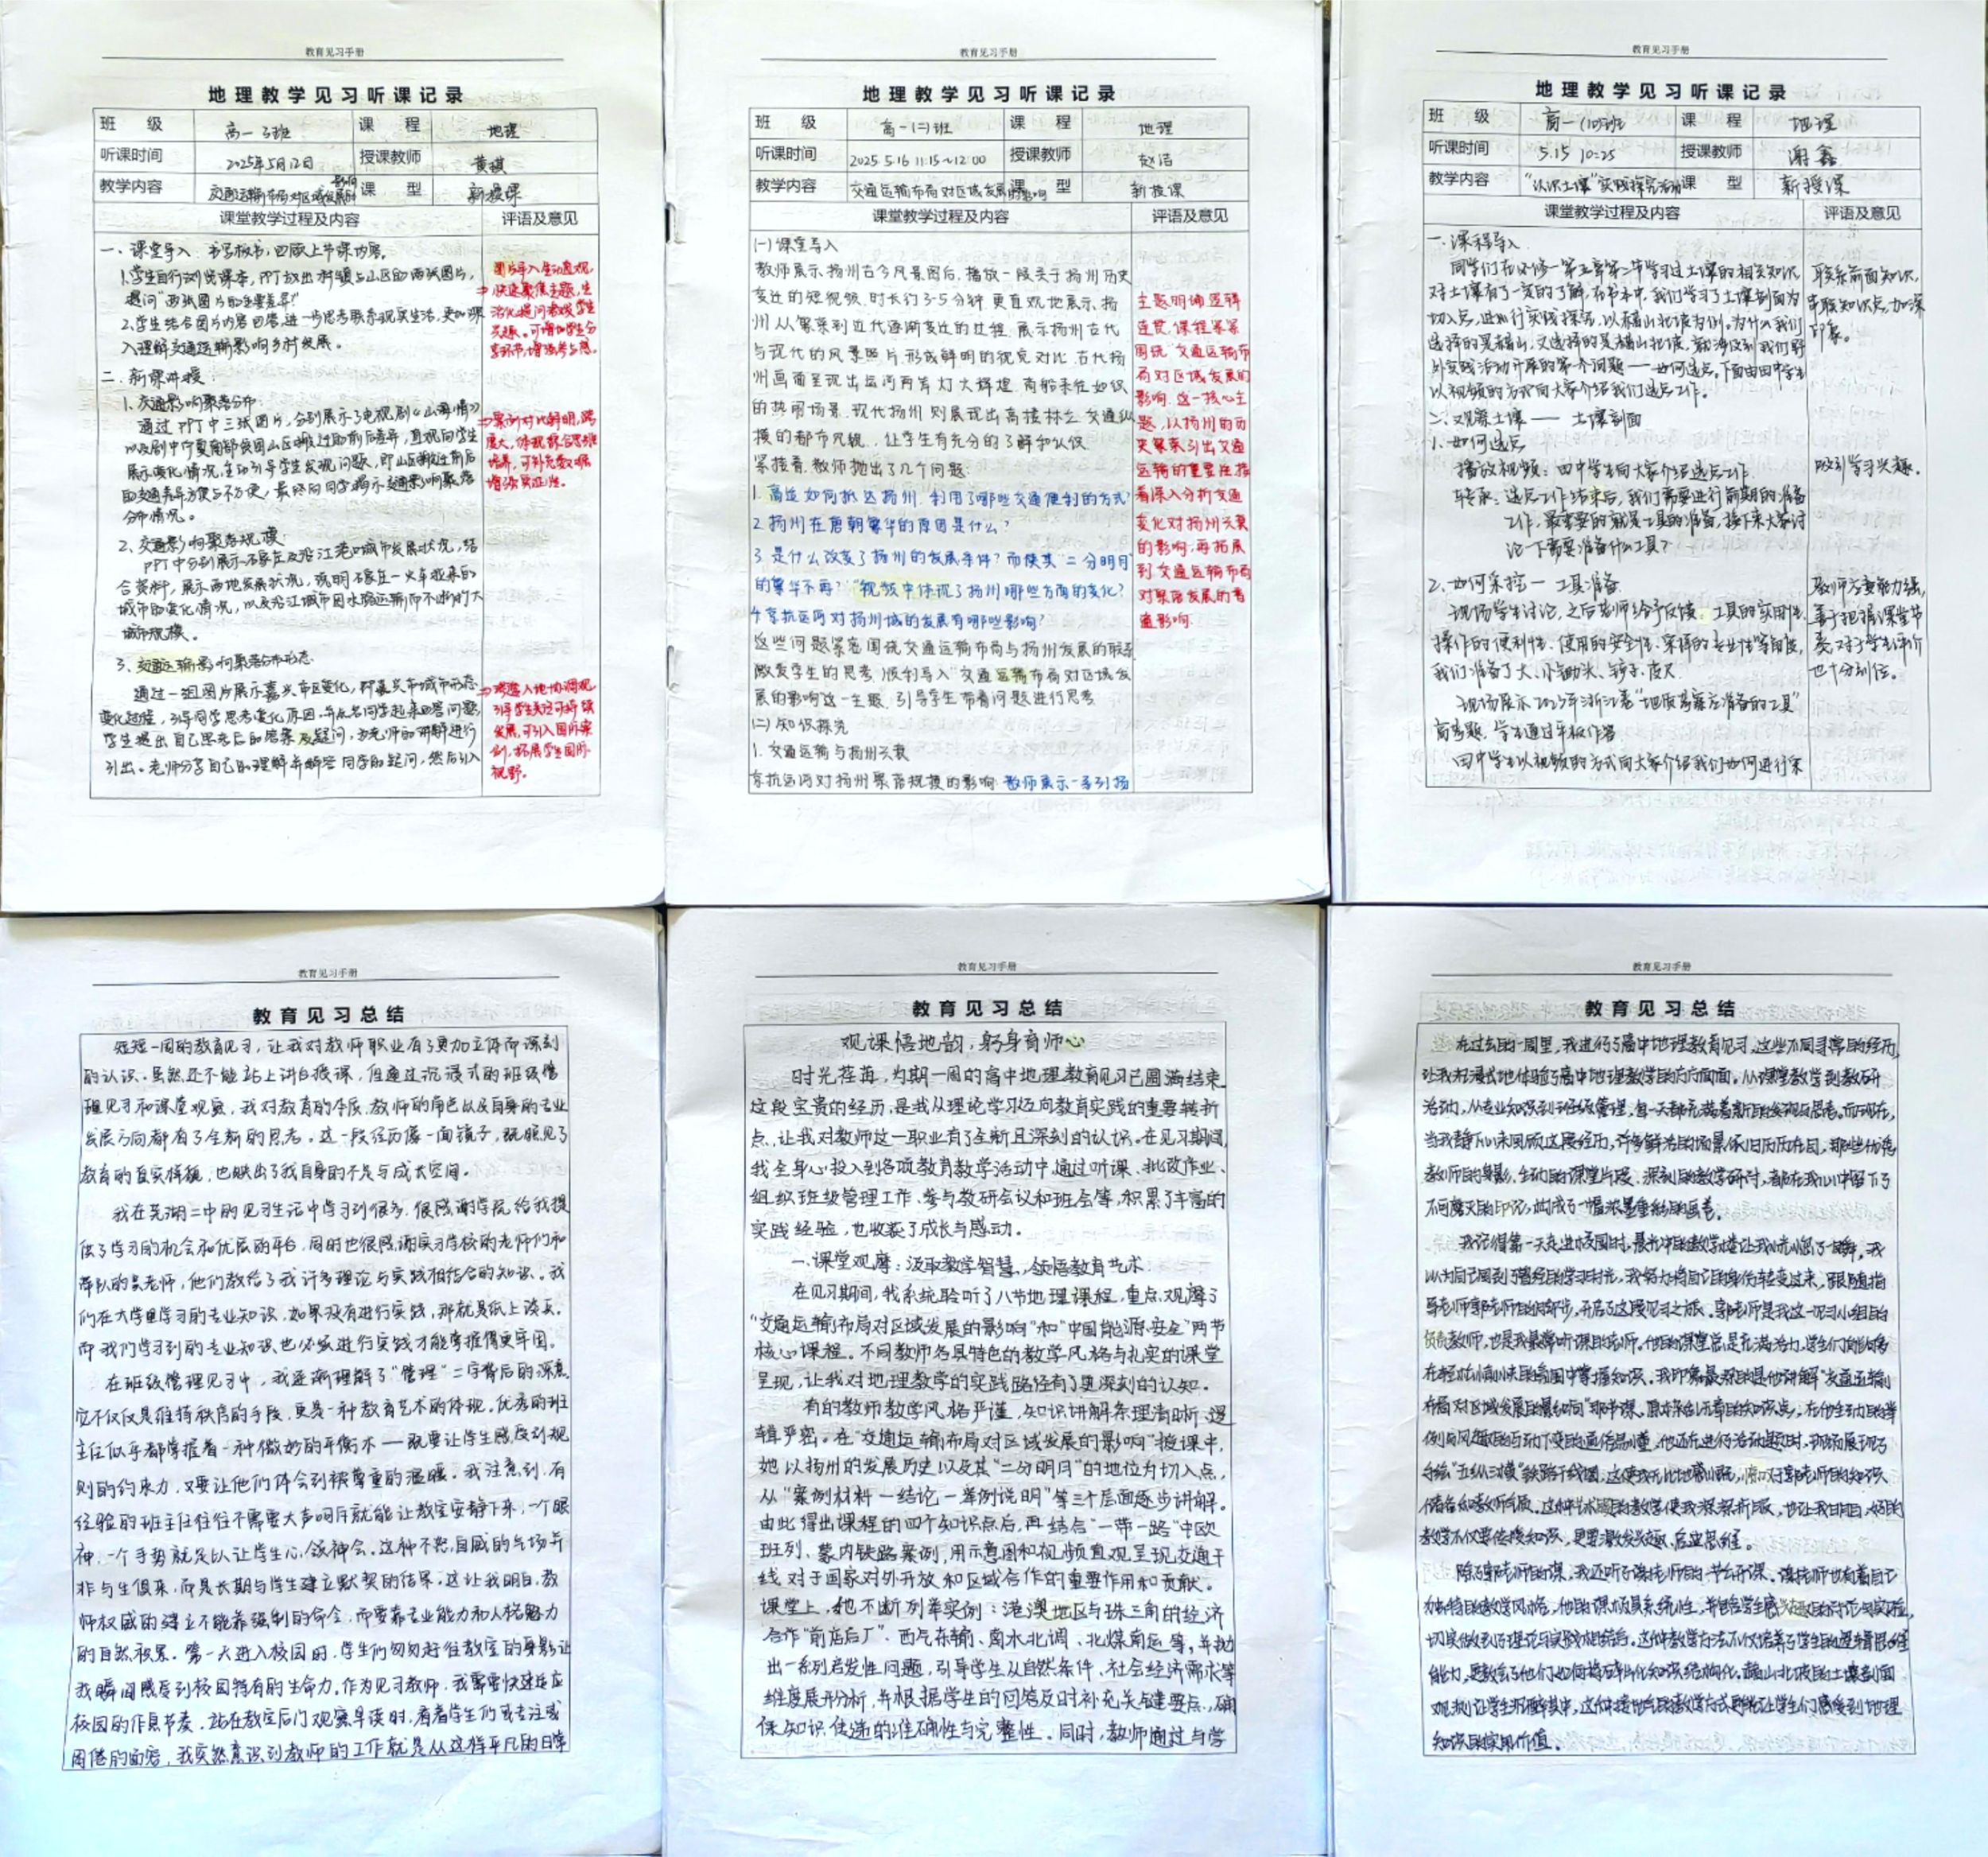 教育见习手册
地理教学见习听课记录
班 级 高一3班 课 程 地理
听课时间 2025年5月12日 授课教师 黄祺
教学内容 交通运输布局对区域发展的影响 课 型 新授课
课堂教学过程及内容 评语及意见
一、课堂导入:书写板书,回顾上节课内容。
1.学生自行浏览课本,PPT放出村镇与山区的两张图片,
提问“两张图片的主要差异”
2.学生结合图片内容回答,进一步思考联系现实生活,更加深
入理解交通运输影响乡村发展。
二、新课讲授:
1、交通影响聚落分布:
通过PPT中三张图片,分别展示了电视剧《山海情》
以及剧中宁夏南部贫困山区搬迁的前后差异,直观向学生
展示变化情况,主动引导学生发现问题,即山区搬迁前后
的交通差异方便与不方便,最终向同学揭示交通影响聚落
分布情况。
2、交通影响聚落规模:
PPT中分别展示石家庄及沿江港口城市发展状况,结
合资料,展示两地发展状况,说明石家庄—火车拉来的
城市的变化情况,以及沿江城市因水路运输而不断扩大
城市规模。
3、交通运输影响聚落分布形态
通过一组图片展示嘉兴市区变化,即嘉兴市城市形态
变化过程,引导同学思考变化原因,并点名同学起来回答问题,
学生提出自己思考后的答案及疑问,由老师的讲解进行
引出。老师分享自己的理解并解答同学的疑问,然后引入
图片导入生动直观,
快速聚焦主题,生
活化提问激发学生
兴趣。可增加学生分
享环节,增强参与感。
案例对比鲜明,跨
度大,体现综合思维
培养,可补充数据
增强实证性。
渗透人地协调观,
引导学生关注可持续
发展,可引入国际案
例,拓展学生国际
视野。
教育见习手册
地理教学见习听课记录
班 级 高一(二)班 课 程 地理
听课时间 2025.5.16 11:15~12:00 授课教师 赵洁
教学内容 交通运输布局对区域发展的影响 课 型 新授课
课堂教学过程及内容 评语及意见
(一)课堂导入
教师展示扬州古今风景图后,播放一段关于扬州历史
变迁的短视频,时长约3-5分钟,更直观地展示扬
州从繁荣到近代逐渐变迁的过程,展示扬州古代
与现代的风景照片,形成鲜明的视觉对比,古代扬
州画面呈现出运河两岸灯火辉煌,商船来往如织
的热闹场景,现代扬州则展现出高楼林立,交通纵
横的都市风貌,让学生有充分的了解和认识
紧接着,教师抛出了几个问题:
1.高适如何抵达扬州,利用了哪些交通便利的方式?
2.扬州在唐朝繁华的原因是什么?
3.是什么改变了扬州的发展条件?而使其“二分明月”
的繁华不再?“视频中体现了扬州哪些方面的变化?
4.京杭运河对扬州城的发展有哪些影响?
这些问题紧密围绕交通运输布局与扬州发展的联系
激发学生的思考,顺利导入“交通运输布局对区域发
展的影响这一主题,引导学生带着问题进行思考
(二)知识探究
1.交通运输与扬州兴衰
京杭运河对扬州聚落规模的影响:教师展示一系列扬
主题明确逻辑
连贯,课程紧紧
围绕“交通运输布
局对区域发展的
影响”这一核心主
题,以扬州的历
史繁荣引出交通
运输的重要性,接
着深入分析交通
变化对扬州兴衰
的影响,再拓展
到交通运输布局
对聚落发展的普
遍影响
教育见习手册
地理教学见习听课记录
班 级 高一(10)班 课 程 地理
听课时间 5.15 10:25 授课教师 谢鑫
教学内容 “认识土壤”实践探究活动 课 型 新授课
课堂教学过程及内容 评语及意见
一、课程导入
同学们在必修一第五章第二节学习过土壤的相关知识,
对土壤有了一定的了解,在书本中,我们学习了土壤剖面为
切入点,进行实践探究,以赭山北坡为例。为什么我们
选择的是赭山,又选择的是赭山北坡,就涉及到我们野
外实践活动开展的第一个问题——如何选点,下面由田中学生
以视频的方式向大家介绍我们选点工作。
二、观察土壤——土壤剖面
1.如何选点
播放视频:田中学生向大家介绍选点工作
转承:选点工作结束后,我们需要进行前期的准备
工作,最重要的就是工具的准备,接下来大家讨
论一下需要准备什么工具?
2.如何采挖—工具准备
现场学生讨论,之后老师给予反馈。工具的实用性,
操作的便利性、使用的安全性、采样的专业性等角度,
我们准备了大、小锄头、铲子、皮尺
现场展示2023年浙江卷“地质考察应准备的工具”
高考题,学生通过平板作答
田中学生以视频的方式向大家介绍我们如何进行采
联系前面知识,
串联知识点,加深
印象。
吸引学习兴趣。
教师应变能力强,
善于把握课堂节
奏,对于学生评价
也十分到位。
教育见习手册
教育见习总结
短短一周的教育见习,让我对教师职业有了更加立体而深刻
的认识。虽然还不能站上讲台授课,但通过沉浸式的班级管
理见习和课堂观察,我对教育的本质、教师的角色以及自身的专业
发展方向都有了全新的思考。这一段经历像一面镜子,既照见了
教育的真实样貌,也映出了我自身的不足与成长空间。
我在芜湖二中的见习生活中学习到很多,很感谢学院给我提
供了学习的机会和优质的平台,同时也很感谢实习学校的老师们和
带队的吴老师,他们教给了我许多理论与实践相结合的知识。我
们在大学里学习的专业知识,如果没有进行实践,那就是纸上谈兵。
而我们学习到的专业知识也必须进行实践才能掌握得更牢固。
在班级管理见习中,我逐渐理解了“管理”二字背后的深意,
它不仅仅是维持秩序的手段,更是一种教育艺术的体现。优秀的班
主任似乎都掌握着一种微妙的平衡术——既要让学生感受到规
则的约束力,又要让他们体会到被尊重的温暖。我注意到,有
经验的班主任往往不需要大声呵斥就能让教室安静下来,一个眼
神,一个手势就足以让学生心领神会。这种不怒自威的气场并
非与生俱来,而是长期与学生建立默契的结果。这让我明白,教
师权威的建立不能靠强制的命令,而要靠专业能力和人格魅力
的自然积累。第一天进入校园时,学生们匆匆赶往教室的身影让
我瞬间感受到校园特有的生命力。作为见习教师,我需要快速适应
校园的作息节奏。站在教室后门观察早读时,看着学生们或专注或
困倦的面容,我突然意识到教师的工作就是从这样平凡的日常
教育见习手册
教育见习总结
观课悟地韵,躬身育师心
时光荏苒,为期一周的高中地理教育见习已圆满结束,
这段宝贵的经历,是我从理论学习迈向教育实践的重要转折
点,让我对教师这一职业有了全新且深刻的认识。在见习期间,
我全身心投入到各项教育教学活动中,通过听课、批改作业、
组织班级管理工作、参与教研会议和班会等,积累了丰富的
实践经验,也收获了成长与感动。
一、课堂观摩:汲取教学智慧,领悟教育艺术
在见习期间,我系统聆听了八节地理课程,重点观摩了
“交通运输布局对区域发展的影响”和“中国能源安全”两节
核心课程。不同教师各具特色的教学风格与扎实的课堂
呈现,让我对地理教学的实践路径有了更深刻的认知。
有的教师教学风格严谨,知识讲解条理清晰、逻
辑严密。在“交通运输布局对区域发展的影响”授课中,
她以扬州的发展历史以及其“二分明月”的地位为切入点,
从“案例材料—结论—举例说明”等三个层面逐步讲解。
由此得出课程的四个知识点后,再结合“一带一路”中欧
班列、蒙内铁路案例,用示意图和视频直观呈现交通干
线对于国家对外开放和区域合作的重要作用和贡献。
课堂上,她不断列举实例:港澳地区与珠三角的经济
合作“前店后厂”、西气东输、南水北调、北煤南运等,并抛
出一系列启发性问题,引导学生从自然条件、社会经济需求等
维度展开分析,并根据学生的回答及时补充关键要点,确
保知识传递的准确性与完整性。同时,教师通过与学
教育见习手册
教育见习总结
在过去的一周里,我进行了高中地理教育见习,这些不同寻常的经历,
让我沉浸式地体验了高中地理教学的方方面面。从课堂教学到教研
活动,从专业知识到班级管理,每一天都充满着新的发现与思考。而现在,
当我静下心来回顾这段经历,许多鲜活的场景依旧历历在目,那些优秀
教师的身影、生动的课堂片段、深刻的教学研讨,都在我心中留下了
不可磨灭的印记,构成了一幅浓墨重彩的画卷。
我记得第一天走进校园时,晨光中的教学楼让我恍惚了一瞬,我
以为自己回到了曾经的学习时光,我努力将自己的身份转变过来,跟随指
导老师郭老师的脚步,开启了这段见习之旅。郭老师是我这一见习小组的
负责教师,也是我最常听课的老师。他的课堂总是充满活力,学生们能够
在轻松愉快的氛围中掌握知识。我印象最深的是他讲解“交通运输
布局对区域发展的影响”那节课。原本杂乱无章的知识点,在他生动的举
例与风趣的互动下变的通俗易懂,他还在进行活动题时,现场展现了
手绘“五纵三横”铁路干线图,这使我无比地震撼,惊叹于郭老师的知识
储备和教师素质。这种艺术般的教学使我深深折服,也让我明白,好的
教学不仅要传授知识,更要激发兴趣、启迪思维。
除了郭老师的课,我还听了谢老师的一节公开课。谢老师也有着自己
独特的教学风格,他的课颇具系统性,并包含学生感兴趣的讨论与实验,
切实做到了理论与实践相结合。这种教学方法不仅培养了学生的逻辑思维
能力,更教会了他们如何将碎片化知识结构化。赭山北坡的土壤剖面
观测让学生沉醉其中,这种接地气的教学方式更能让学生们感受到地理
知识的实用价值。